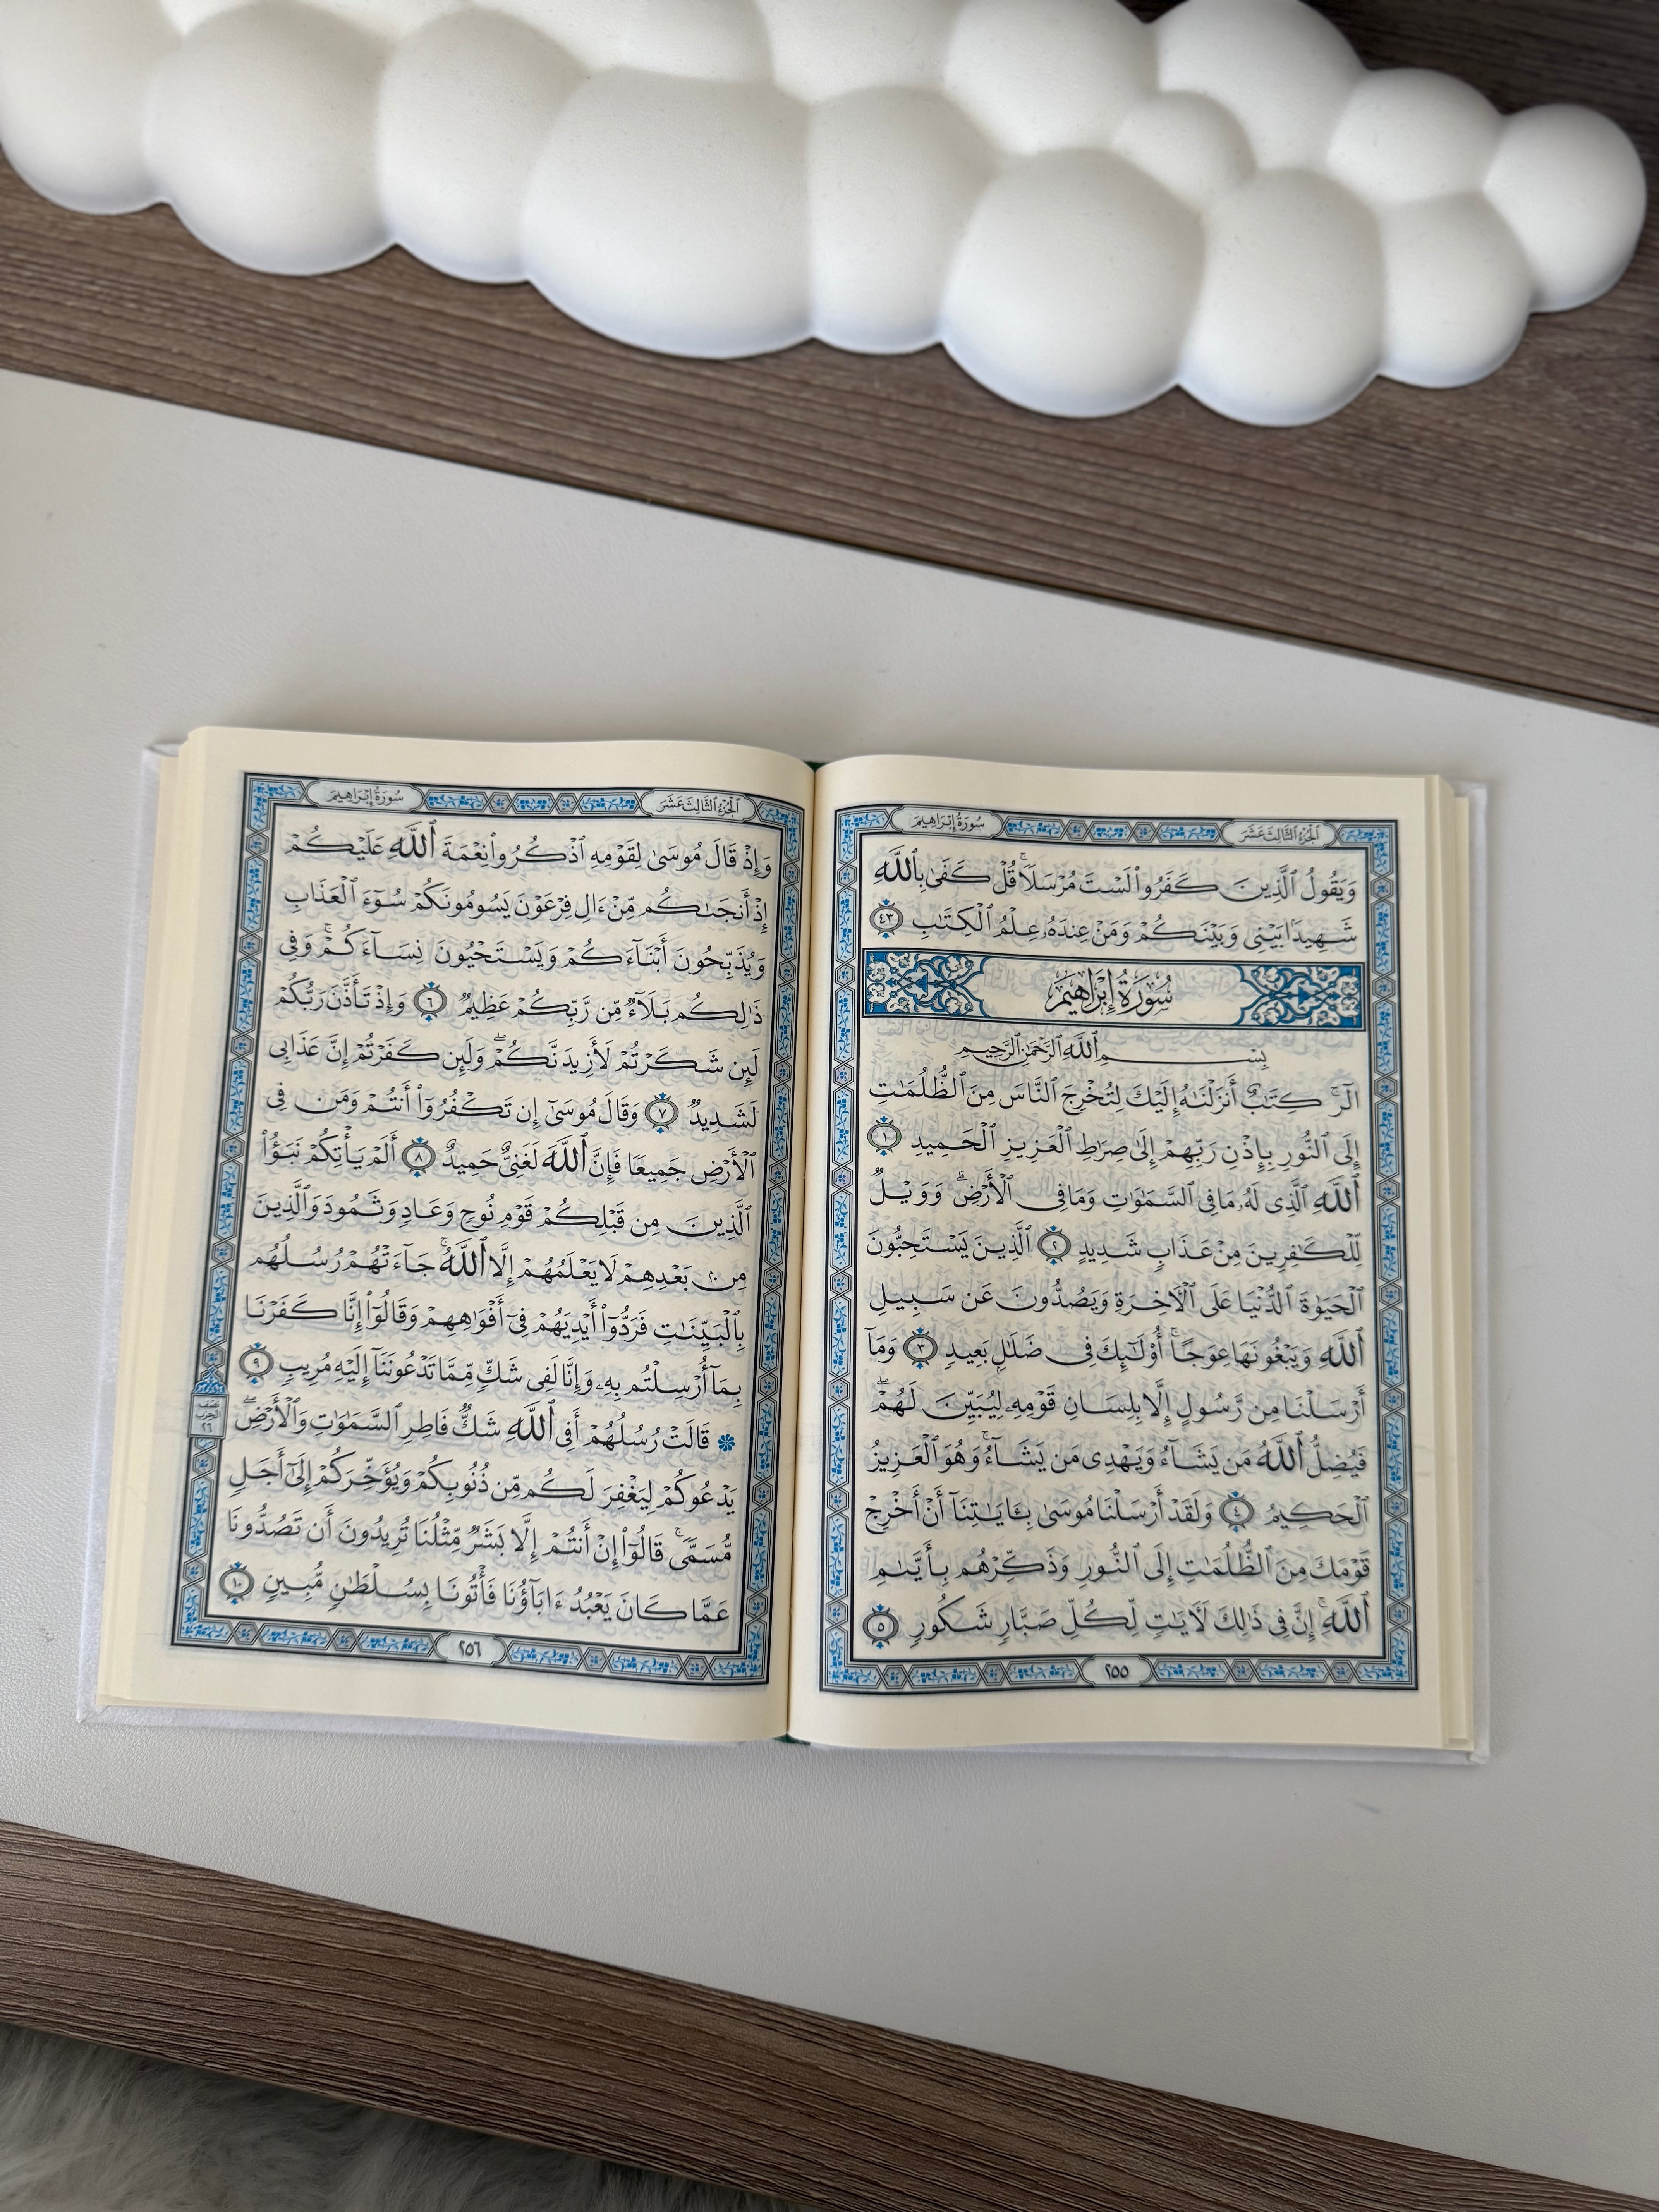 سُورَةُ إِبْرَاهِيمَ
الجُزْءُ الثَّالِثَ عَشَرَ
وَيَقُولُ ٱلَّذِينَ كَفَرُوا۟ لَسْتَ مُرْسَلًا ۚ قُلْ كَفَىٰ بِٱللَّهِ
شَهِيدًۢا بَيْنِى وَبَيْنَكُمْ وَمَنْ عِندَهُۥ عِلْمُ ٱلْكِتَٰبِ ٤٣
سُورَةُ إِبْرَاهِيمَ
بِسْمِ ٱللَّهِ ٱلرَّحْمَٰنِ ٱلرَّحِيمِ
الٓر ۚ كِتَٰبٌ أَنزَلْنَٰهُ إِلَيْكَ لِتُخْرِجَ ٱلنَّاسَ مِنَ ٱلظُّلُمَٰتِ
إِلَى ٱلنُّورِ بِإِذْنِ رَبِّهِمْ إِلَىٰ صِرَٰطِ ٱلْعَزِيزِ ٱلْحَمِيدِ ١
ٱللَّهِ ٱلَّذِى لَهُۥ مَا فِى ٱلسَّمَٰوَٰتِ وَمَا فِى ٱلْأَرْضِ ۗ وَوَيْلٌ
لِّلْكَٰفِرِينَ مِنْ عَذَابٍ شَدِيدٍ ٢ ٱلَّذِينَ يَسْتَحِبُّونَ
ٱلْحَيَوٰةَ ٱلدُّنْيَا عَلَى ٱلْءَاخِرَةِ وَيَصُدُّونَ عَن سَبِيلِ
ٱللَّهِ وَيَبْغُونَهَا عِوَجًا ۚ أُو۟لَٰٓئِكَ فِى ضَلَٰلٍۭ بَعِيدٍ ٣ وَمَآ
أَرْسَلْنَا مِن رَّسُولٍ إِلَّا بِلِسَانِ قَوْمِهِۦ لِيُبَيِّنَ لَهُمْ ۖ
فَيُضِلُّ ٱللَّهُ مَن يَشَآءُ وَيَهْدِى مَن يَشَآءُ ۚ وَهُوَ ٱلْعَزِيزُ
ٱلْحَكِيمُ ٤ وَلَقَدْ أَرْسَلْنَا مُوسَىٰ بِـَٔايَٰتِنَآ أَنْ أَخْرِجْ
قَوْمَكَ مِنَ ٱلظُّلُمَٰتِ إِلَى ٱلنُّورِ وَذَكِّرْهُم بِأَيَّىٰمِ
ٱللَّهِ ۚ إِنَّ فِى ذَٰلِكَ لَءَايَٰتٍ لِّكُلِّ صَبَّارٍ شَكُورٍ ٥
٢٥٥
سُورَةُ إِبْرَاهِيمَ
الجُزْءُ الثَّالِثَ عَشَرَ
وَإِذْ قَالَ مُوسَىٰ لِقَوْمِهِ ٱذْكُرُوا۟ نِعْمَةَ ٱللَّهِ عَلَيْكُمْ
إِذْ أَنجَىٰكُم مِّنْ ءَالِ فِرْعَوْنَ يَسُومُونَكُمْ سُوٓءَ ٱلْعَذَابِ
وَيُذَبِّحُونَ أَبْنَآءَكُمْ وَيَسْتَحْيُونَ نِسَآءَكُمْ ۚ وَفِى
ذَٰلِكُم بَلَآءٌ مِّن رَّبِّكُمْ عَظِيمٌ ٦ وَإِذْ تَأَذَّنَ رَبُّكُمْ
لَئِن شَكَرْتُمْ لَأَزِيدَنَّكُمْ ۖ وَلَئِن كَفَرْتُمْ إِنَّ عَذَابِى
لَشَدِيدٌ ٧ وَقَالَ مُوسَىٰٓ إِن تَكْفُرُوٓا۟ أَنتُمْ وَمَن فِى
ٱلْأَرْضِ جَمِيعًا فَإِنَّ ٱللَّهَ لَغَنِىٌّ حَمِيدٌ ٨ أَلَمْ يَأْتِكُمْ نَبَؤُا۟
ٱلَّذِينَ مِن قَبْلِكُمْ قَوْمِ نُوحٍ وَعَادٍ وَثَمُودَ وَٱلَّذِينَ
مِنۢ بَعْدِهِمْ لَا يَعْلَمُهُمْ إِلَّا ٱللَّهُ ۚ جَآءَتْهُمْ رُسُلُهُم
بِٱلْبَيِّنَٰتِ فَرَدُّوٓا۟ أَيْدِيَهُمْ فِىٓ أَفْوَٰهِهِمْ وَقَالُوٓا۟ إِنَّا كَفَرْنَا
بِمَآ أُرْسِلْتُم بِهِۦ وَإِنَّا لَفِى شَكٍّ مِّمَّا تَدْعُونَنَآ إِلَيْهِ مُرِيبٍ ٩
۞ قَالَتْ رُسُلُهُمْ أَفِى ٱللَّهِ شَكٌّ فَاطِرِ ٱلسَّمَٰوَٰتِ وَٱلْأَرْضِ ۖ
يَدْعُوكُمْ لِيَغْفِرَ لَكُم مِّن ذُنُوبِكُمْ وَيُؤَخِّرَكُمْ إِلَىٰٓ أَجَلٍ
مُّسَمًّى ۚ قَالُوٓا۟ إِنْ أَنتُمْ إِلَّا بَشَرٌ مِّثْلُنَا تُرِيدُونَ أَن تَصُدُّونَا
عَمَّا كَانَ يَعْبُدُ ءَابَآؤُنَا فَأْتُونَا بِسُلْطَٰنٍ مُّبِينٍ ١٠
نصف
الحزب
٢٦
٢٥٦